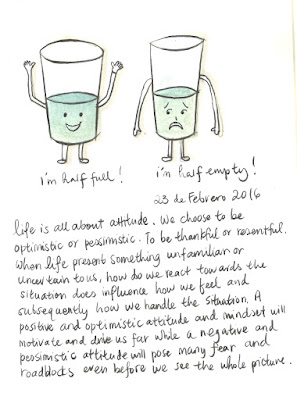 i'm half full! i'm half empty!
23 de Febrero 2016
life is all about attitude. We choose to be
optimistic or pessimistic. To be thankful or resentful.
When life present something unfamiliar or
uncertain to us, how do we react towards the
situation does influence how we feel and
subsequently how we handle the situation. A
positive and optimistic attitude and mindset will
motivate and drive us far while a negative and
pessimistic attitude will pose many fear and
roadblocks even before we see the whole picture.